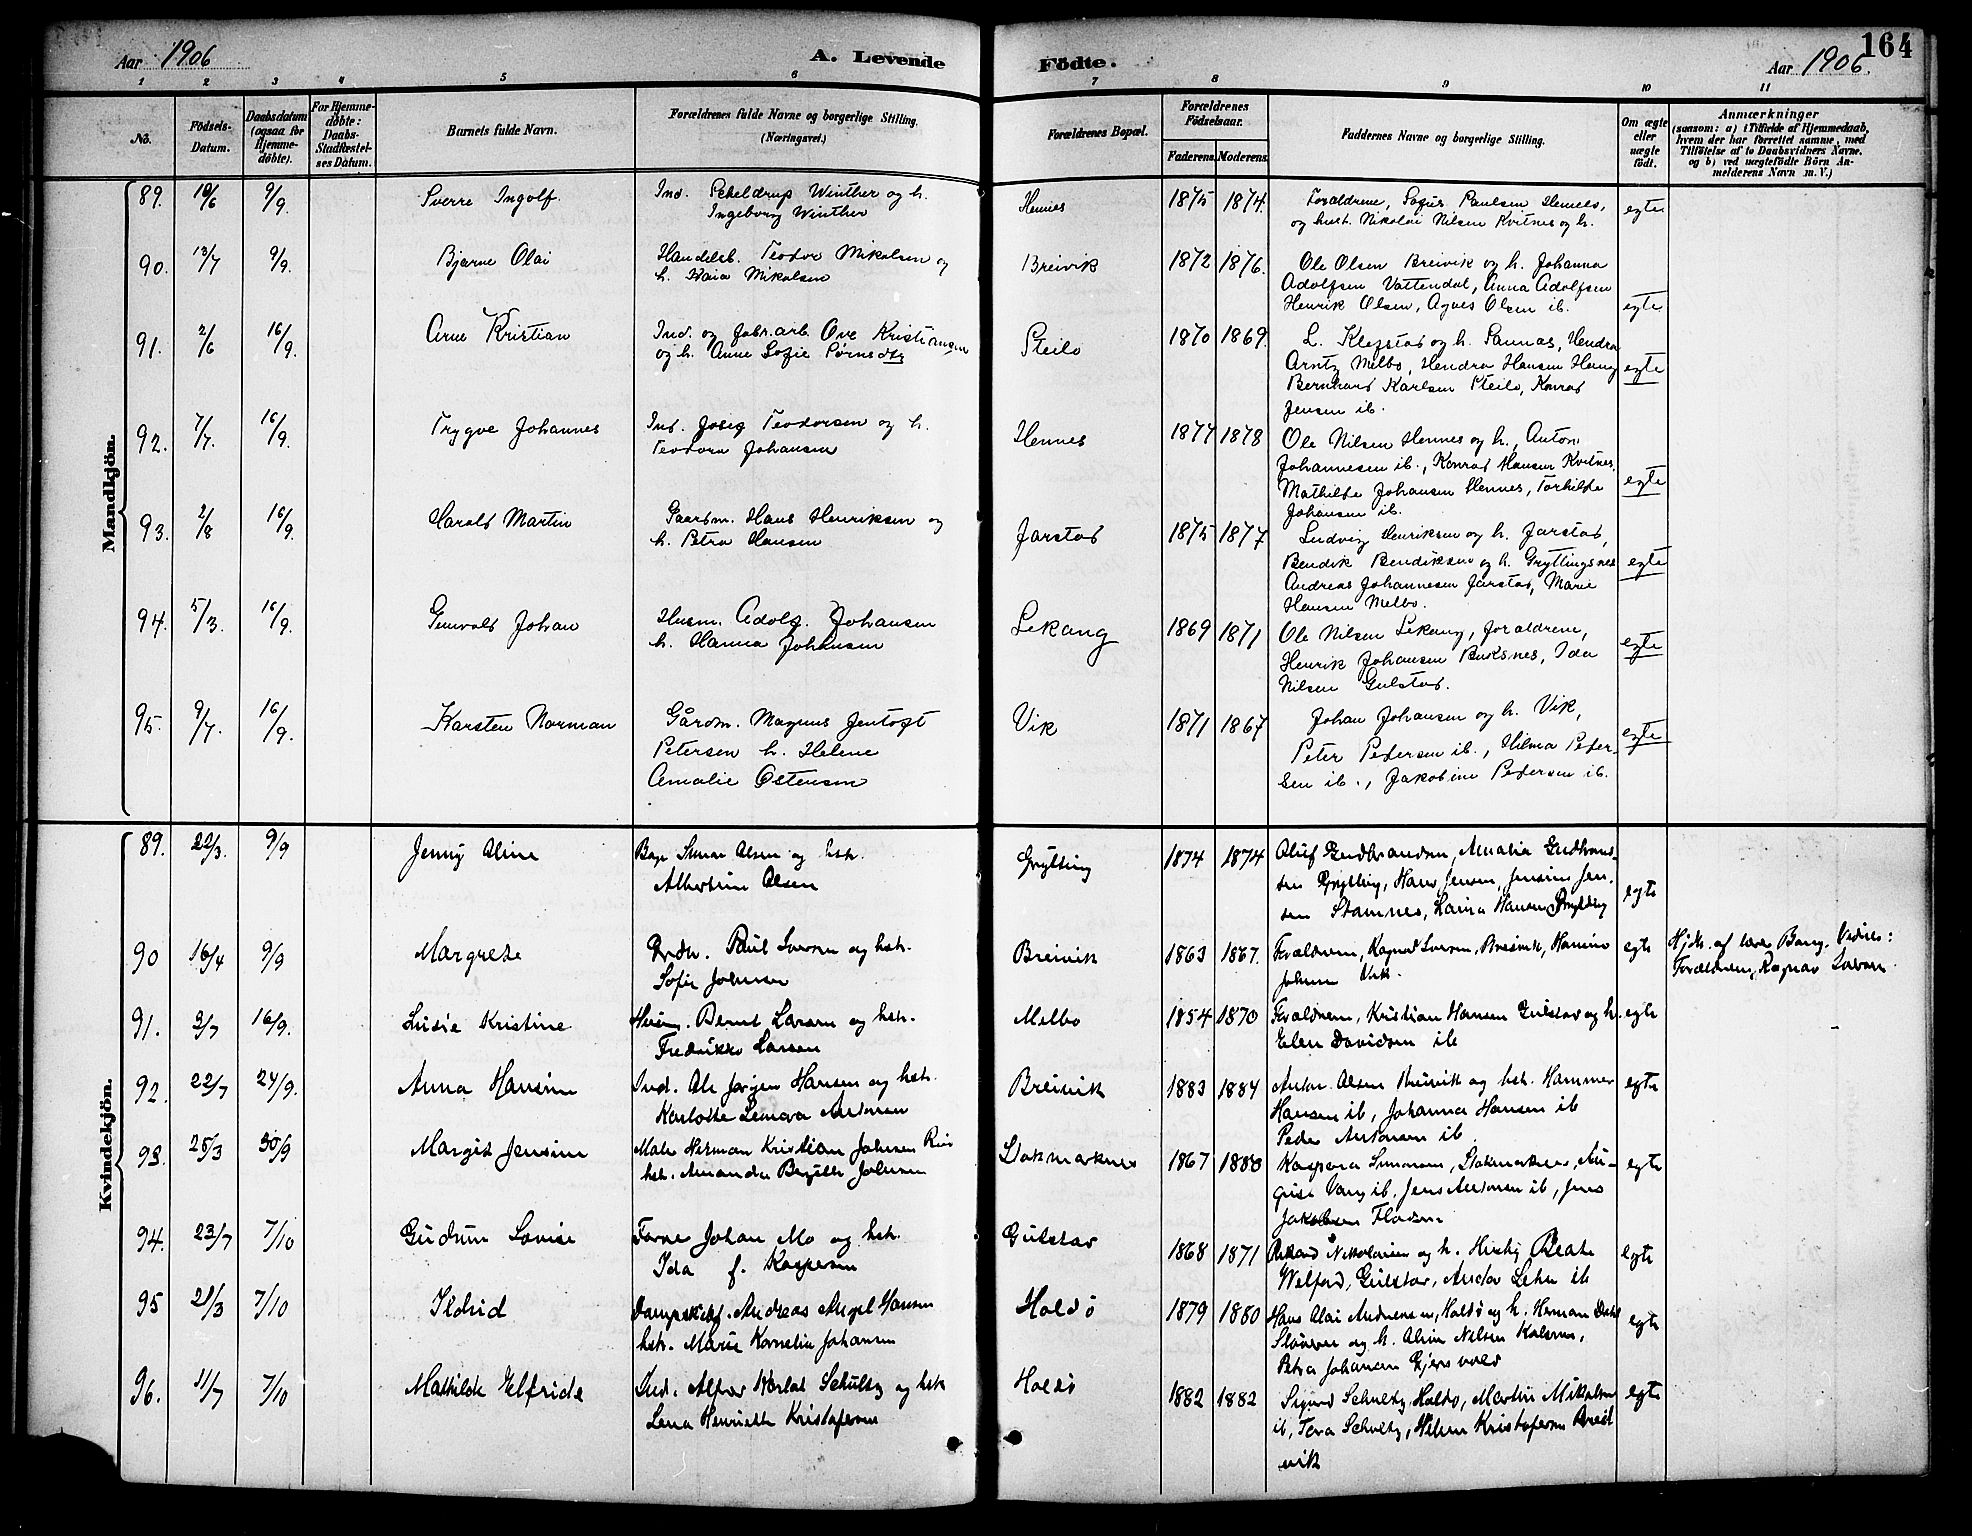 Aar 1906
A. Levende
Födte.
Aar 1906.
164
1 2 3 4 5 6 7 8 9 10 11
No.
Födsels-Datum.
Daabsdatum (ogsaa for Hjemme-döbte).
For Hjemme-döbte: Daabs-Stadfæstel-ses Datum.
Barnets fulde Navn.
Forældrenes fulde Navne og borgerlige Stilling. (Næringsvei.)
Forældrenes Bopæl.
Forældrenes Födselsaar.
Faderens. Moderens.
Faddernes Navne og borgerlige Stilling.
Om ægte eller uægte födt.
Anmærkninger
(saasom: a) i Tilfælde af Hjemmedaab,
hvem der har forrettet samme, med
Tilföielse af to Daabsvidners Navne.
og b) ved uægtefödte Börn An-
melderens Navn m. V.)
Mandkjön.
89. 10/6 9/9. Sverre Ingolf. Ind. Scheldrup Winther og h. Hennes 1875 1874. Forældrene, Sofus Paulsen Hennes, egte
Ingeborg Winther
og hust. Nikolai Nilsen Kvitnes og h.
90. 13/7 9/9. Bjarne Olai Handelsb. Teodor Mikalsen og Breivik 1872 1876. Ole Olsen Breivik og h. Johanna
h. Kaia Mikalsen
Adolfsen Vattendal, Anna Adolfsen
Henrik Olsen, Agnes Olsen ib. egte
91. 2/6 16/9. Arne Kristian Ind. og fabr.arb. Ove Kristiansen Steilo 1870 1869.
og h. Anne Sofie Sørnsdtr
Arntz Melbo, Hendra Hansen egte
Bernhard Karlsen Steilo, Konrad
Jensen ib.
92. 7/7. 16/9. Trygve Johannes Ind. Josef Teodorsen og h. Hennes 1877 1878 Ole Nilsen Hennes og h., Anton
Teodora Johansen
Johannesen ib., Konrad Hansen Kvitnes,
Mathilde Johansen Hennes, Torhilde egte
Johansen ib.
93. 2/8 16/9. Harald Martin Gaardm. Hans Henriksen og Jarstad 1875 1877 Ludvig Henriksen og h. Jarstad,
h. Petra Hansen
Bendik Bendiksen og h. Gryttingsnes egte
Andreas Johannesen Jarstad, Marie
Hansen Melbo.
94. 5/3. 16/9. Gunvald Johan Husm. Adolf Johansen Lekang 1869 1871 Ole Nilsen Lekang, forældrene,
h. Hanna Johansen
Henrik Johansen Buksnes, Ida egte
Nilsen Gulstad.
95. 9/7. 16/9. Karsten Norman Gårdm. Magnus Jentoft Vik 1871 1867 Johan Johansen og h. Vik,
Petersen h. Helene
Peter Pedersen ib., Hilma Peder- egte
Amalie Ostensen
sen ib., Jakobine Pedersen ib.
Kvindekjön.
89. 22/3. 9/9 Jenny Aline Olsen og hstr. Grytting 1874 1874 Oluf Gudbrandsen, Amalia Gudbrand-
Albertine Olsen
sen Grytting, Hans Jensen, Jensine Jen-
sen Stamnes, Laura Hansen Grytting egte
90 16/4 9/9 Margrete Paul Iversen og hstr. Breivik 1863 1867. Forældrene, Ragnad Iversen, Breivik, egte Hjdt. af lærer Bang. Vidner:
Sofie Johnsen
Johnsen Vik.
Forældrene, Ragnav Iversen
91. 2/7 16/9. Lusie Kristine Husm. Bernt Larsen og hstr. Melbo 1854 1870 Forældrene, Kristian Hansen Gulstad og h. egte
Fredrikke Larsen
Elen Davidsen ib
92. 22/7 24/9. Anna Hansine Ind. Ole Jørgen Hansen og hstr. Breivik 1883 1884 Anton Olsen Breivik og hstr. Hammer egte
Karlotte Lenora Antonsen
Hansen ib, Johanna Hansen ib
Peder Antonsen ib
93. 25/3 30/9 Margit Jensine Maler Herman Kristian Johnsen Stokmarknes 1867 1880 Kaspara Simonsen, Stokmarknes, Au- egte
hstr. Amanda Bergitte Johnsen
gust Vang ib. Jens Antonsen ib, Jens
Jakobsen
94. 23/7 7/10 Gudrun Lovise Johan Mo og hstr. Gulstad 1868 1871 Rikard Nikolaisen og h. Beate egte
Ida f. Kaspersen
Gulstad, Andor Lehn ib
95 21/3 7/10 Ildrid Dampskibsf. Andreas Angel Hansen Haldö 1879 1880 Hans Olai Andreasen, Haldö og h. Herman egte
hstr. Marie Kornelia Johansen
og h. Aline Nilsen
Petra Johansen
96. 11/7 7/10 Mathilde Elfride Ind. Alfred Schultz og hstr Haldö 1882 1882 Sigurd Schultz, Haldö, Martin Mikalsen egte
Lena Henriette Kristofersen
ib, Tora Schultz, Helene Kristofersen Breid
vik